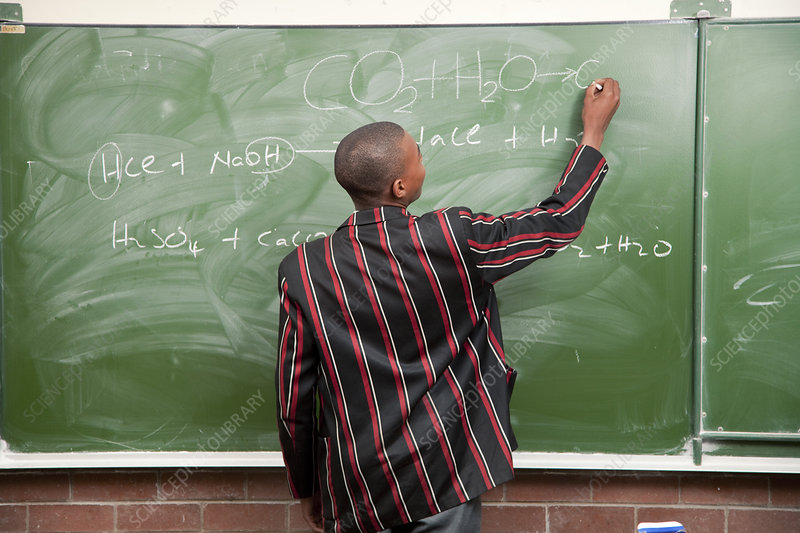 CO₂ + H₂O → C
HCl + NaOH → NaCl + H₂
H₂SO₄ + CaCO ₂ + H₂O
SCIENCEPHOTOLIBRARY